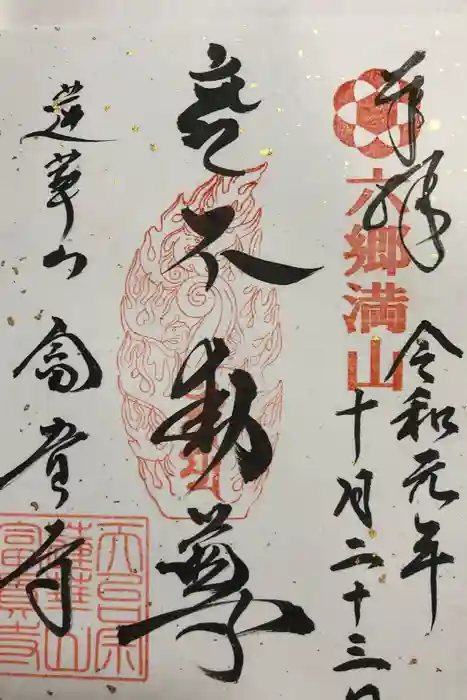 奉拝
六郷満山
令和元年
十月二十三日
壱不動尊
蓮華山 富貴寺
天台宗
蓮華山
富貴寺